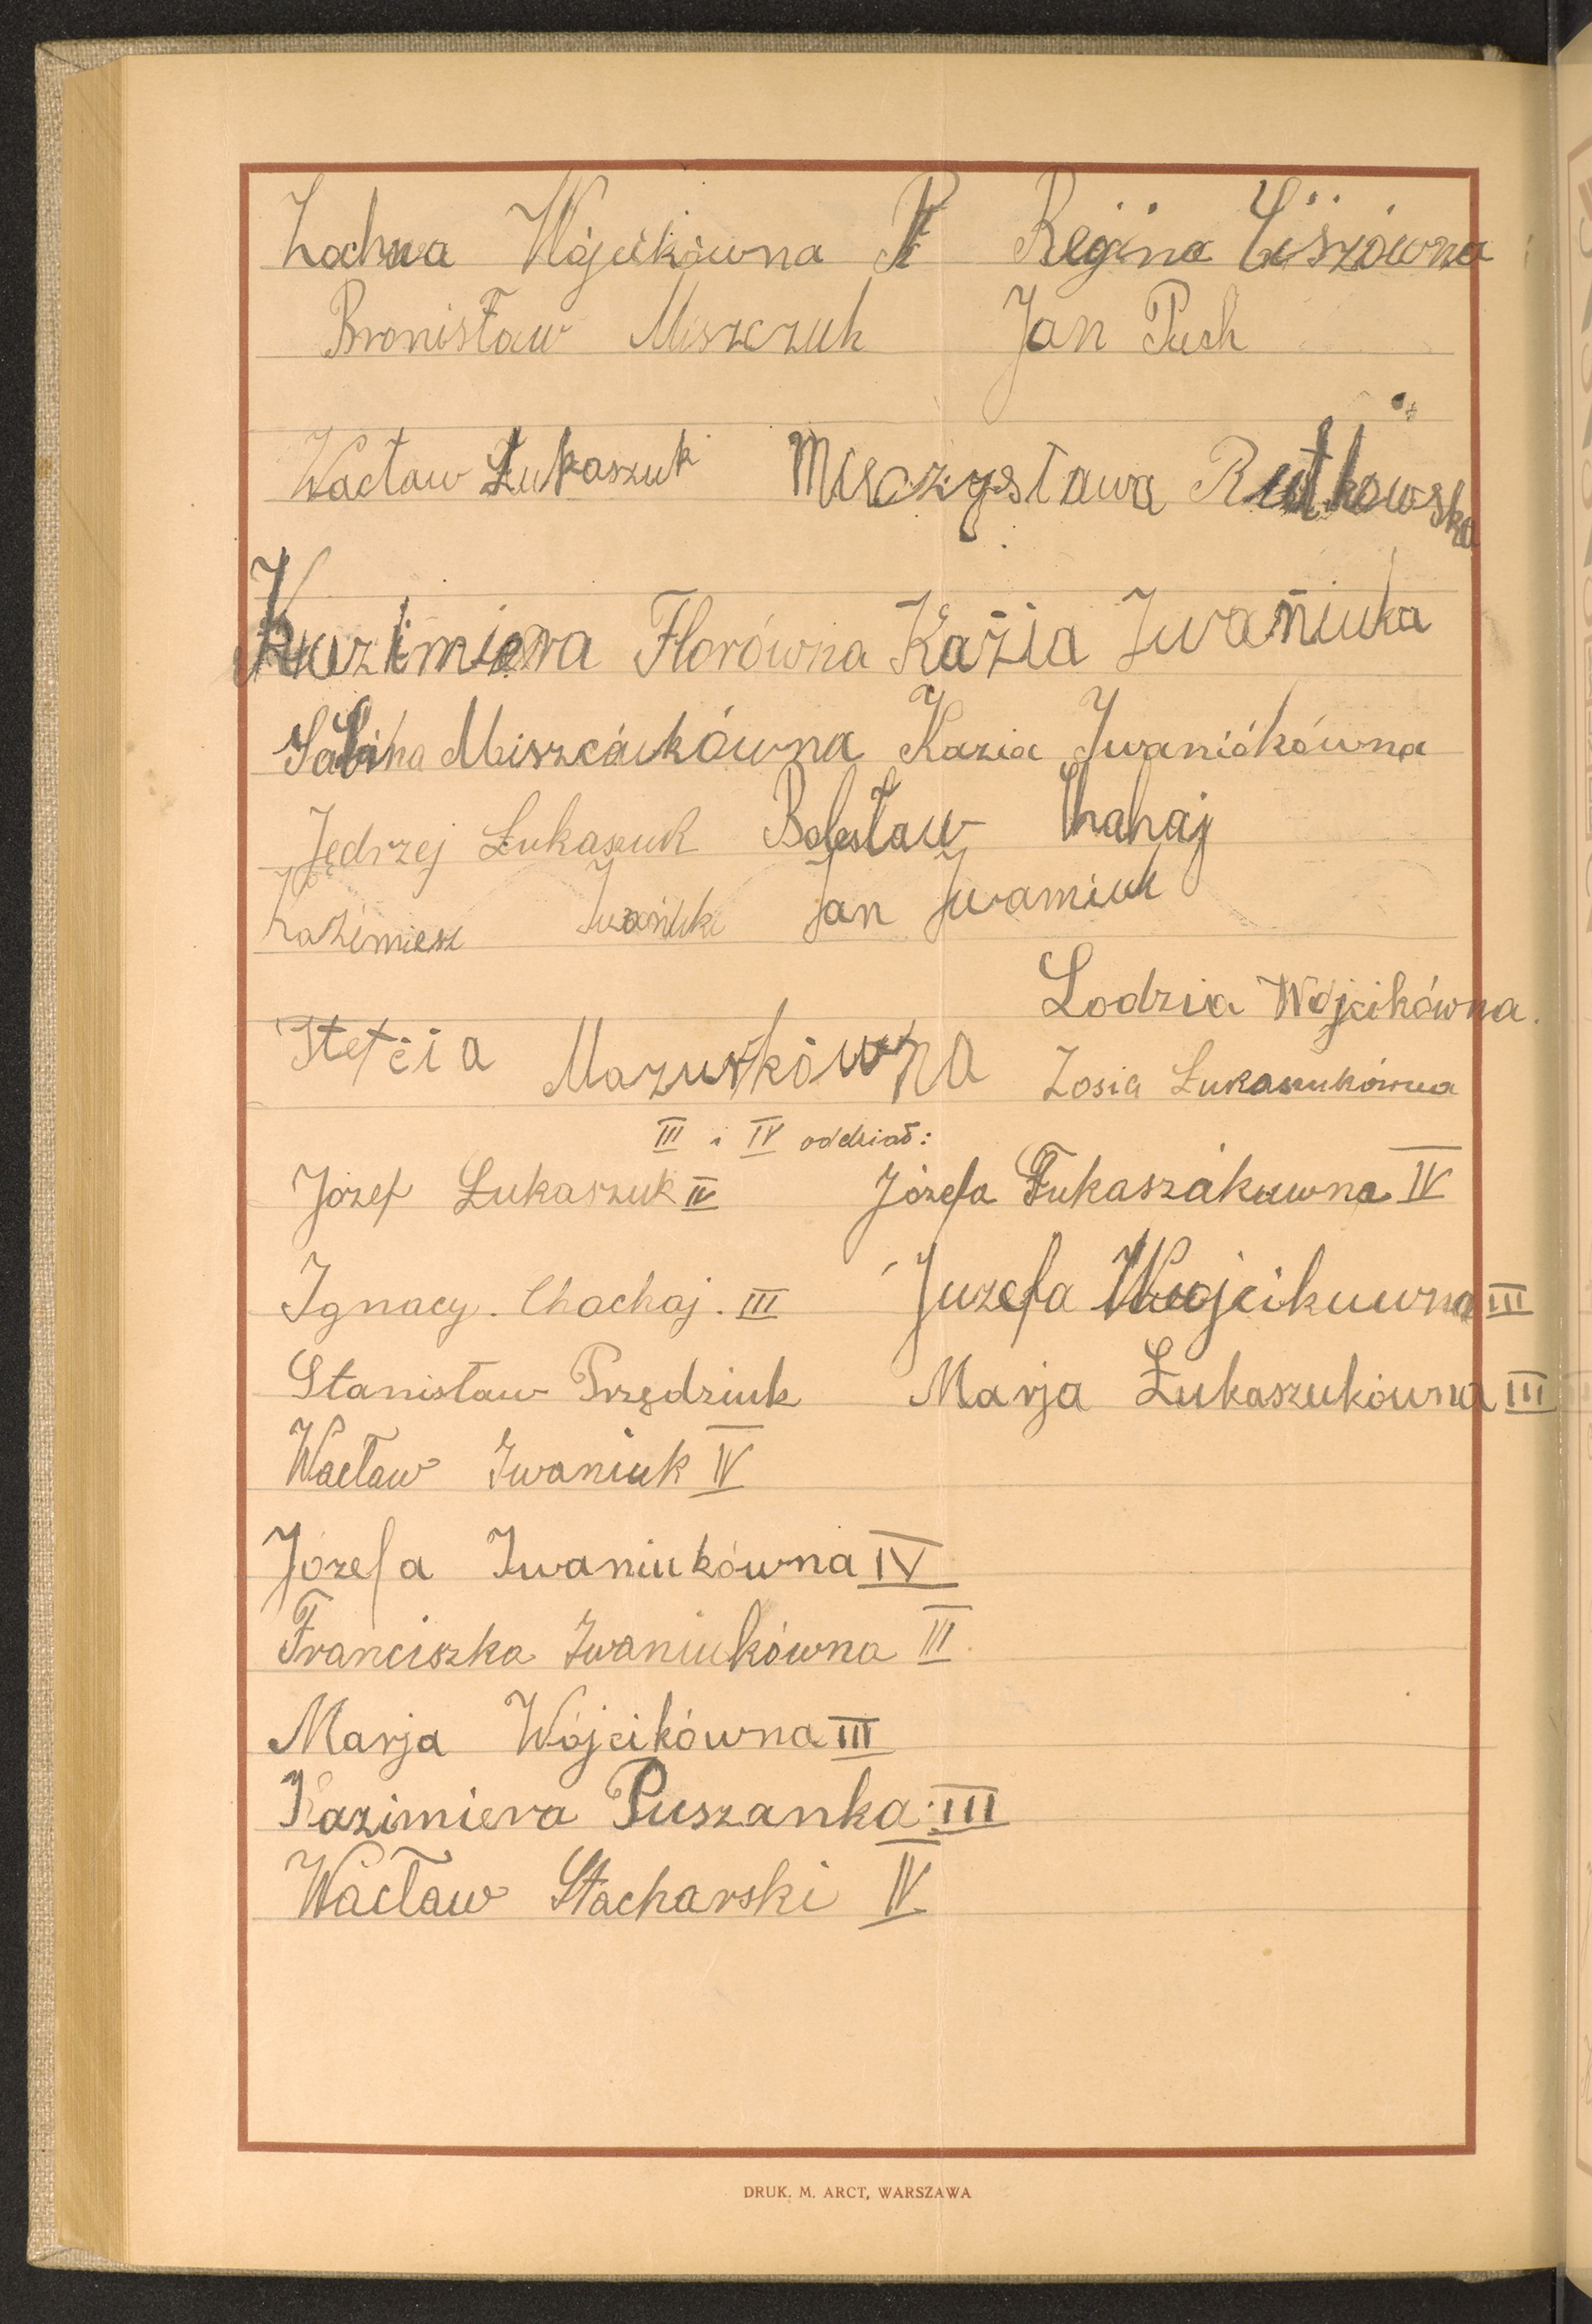 Wójcikówna Regina
Bronisław Miszczuk Jan Puch
Wacław Łukaszuk Mieczysława Rutkowska
Kazimiera Florówna Kazia Iwaniuka
Sabina Miszcukówna Kazia Iwaniókówna
Jędrzej Łukaszuk Bolesław Chahaj
Kazimiesz Iwańuk Jan Iwamiuk
Lodzia Wójcikówna.
Stefcia Mazurkówna Zosia Łukaszukówna
III i IV oddział:
Józef Łukaszuk IV Józefa Łukaszakuwna IV
Ignacy. Chachaj. III Juzefa Wujcikuwna III
Stanisław Przędziuk Marja Łukaszukówna III
Wacław Iwaniuk IV
Józefa Iwaniukówna IV
Franciszka Iwaniukówna III
Marja Wójcikówna III
Kazimiera Puszanka III
Wacław Stacharski IV
DRUK. M. ARCT, WARSZAWA